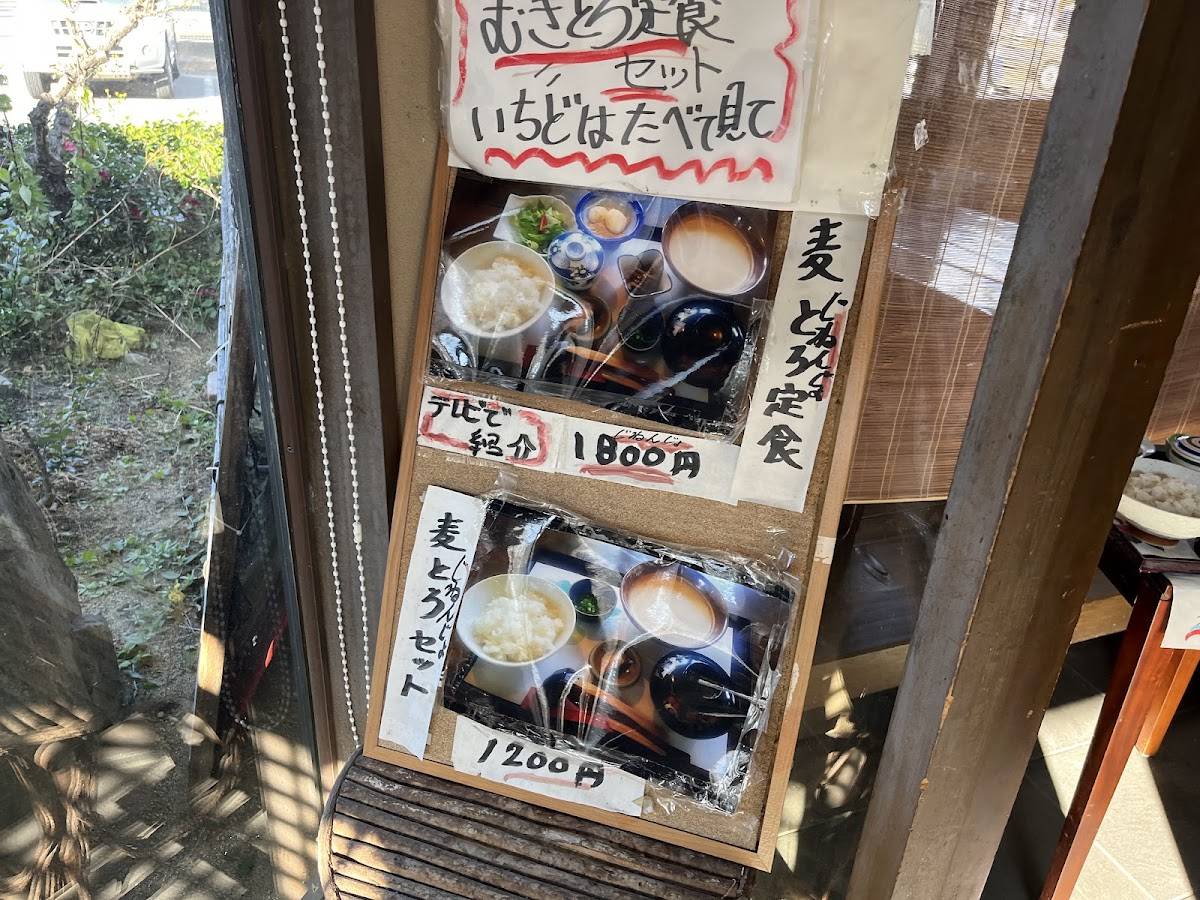 むぎとろ定食
〃 セット
いちどはたべて見て
麦とろ定食
じねんじょ
テレビで
紹介
じねんじょ
1800円
麦とろセット
じねんじょ
1200円